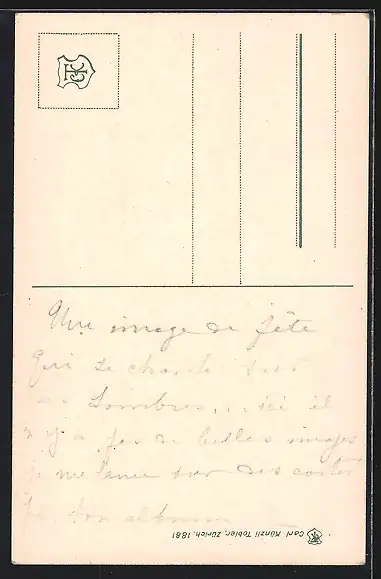 Une image de fête
qui se
sombres... ici il
n'y a pas de belles images
je me lance sur des cartes
ton album
Carl Künzli Tobler, Zürich, 1881